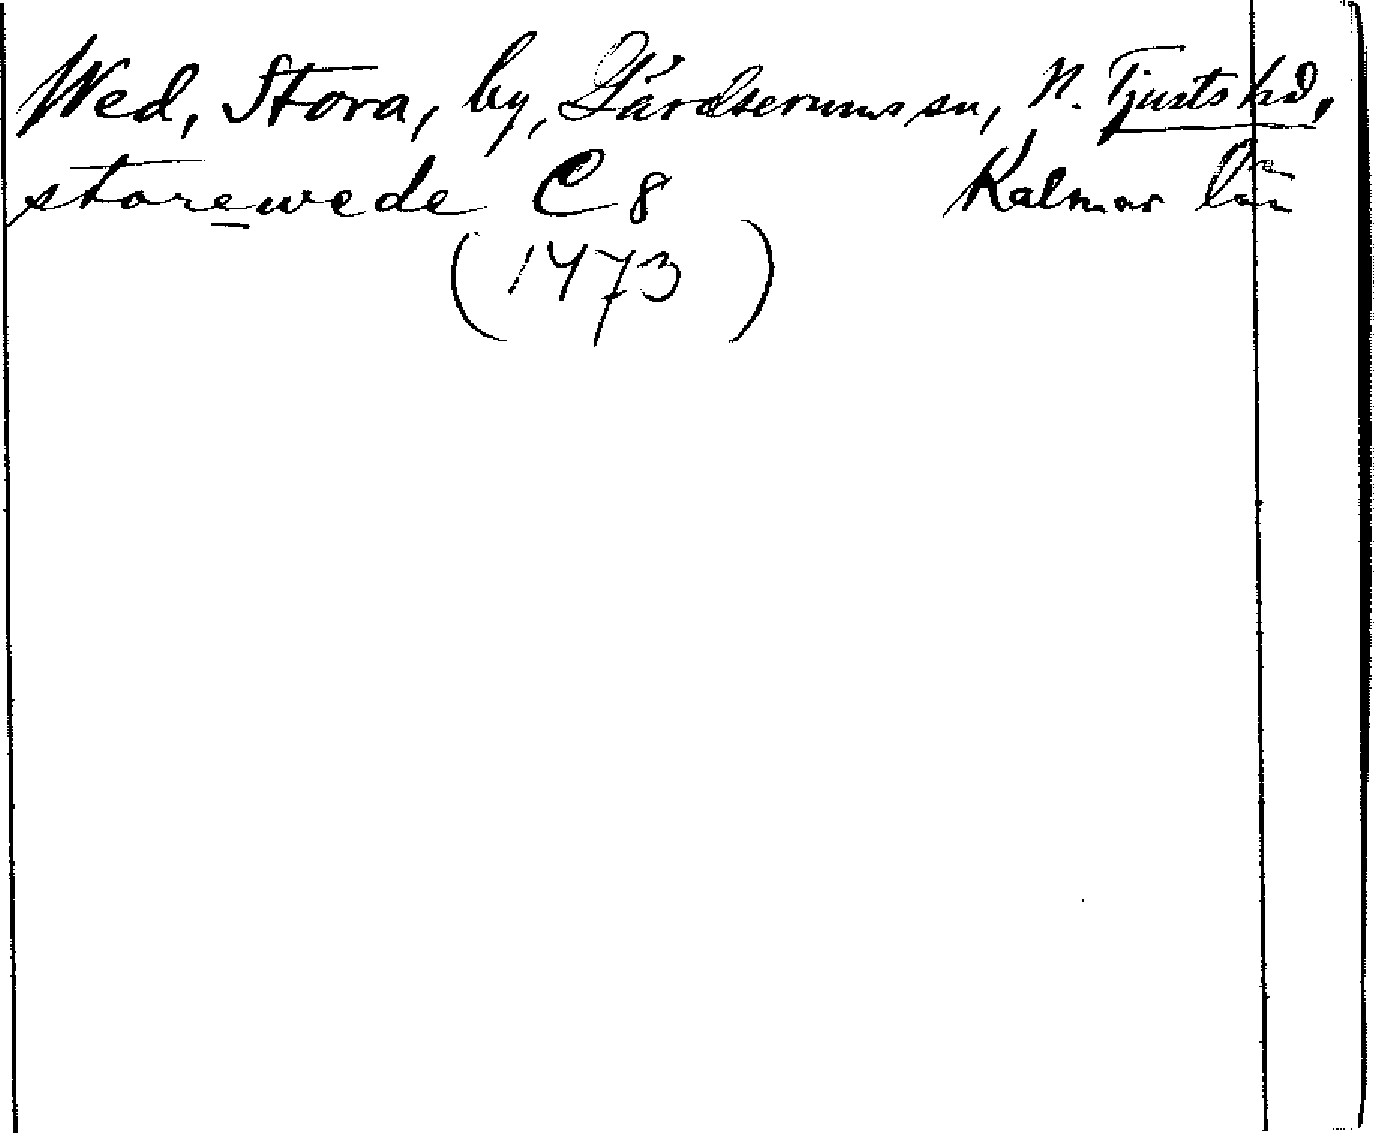 Wed, Stora, by, Gärdserums sn, N. Tjusts hd,
storewede C 8 Kalmar län
(1473)